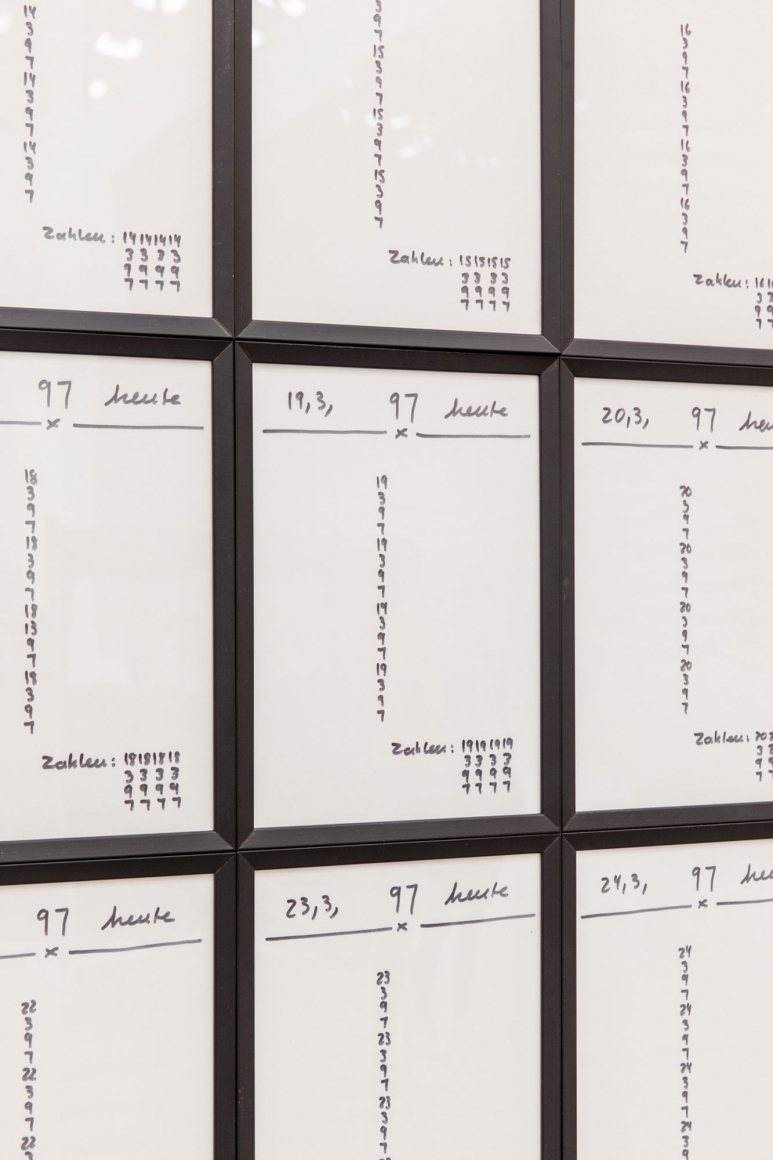 14
3
9
7
14
3
9
7
14
3
9
7
Zahlen: 14141414
3 3 3 3
9 9 9 9
7 7 7 7
3
9
7
15
3
9
7
15
3
9
7
15
3
9
7
Zahlen: 15151515
3 3 3 3
9 9 9 9
7 7 7 7
16
3
9
7
16
3
9
7
16
3
9
7
16
3
9
7
Zahlen: 161
3 3
9 9
7 7
97 heute
x
18
3
9
7
18
3
9
7
18
13
9
7
18
3
9
7
Zahlen: 18181818
3 3 3 3
9 9 9 9
7 7 7 7
19,3, 97 heute
x
19
3
9
7
19
3
9
7
19
3
9
7
19
3
9
7
Zahlen: 19191919
3 3 3 3
9 9 9 9
7 7 7 7
20,3, 97 heu
x
20
3
9
7
20
3
9
7
20
3
9
7
20
3
9
7
Zahlen: 202
3 3
9 9
7 7
97 heute
x
22
3
9
7
22
3
9
7
22
23,3, 97 heute
x
23
3
9
7
23
3
9
7
23
3
9
7
24,3, 97 heu
x
24
3
9
7
24
3
9
7
24
3
9
7
24
3
9